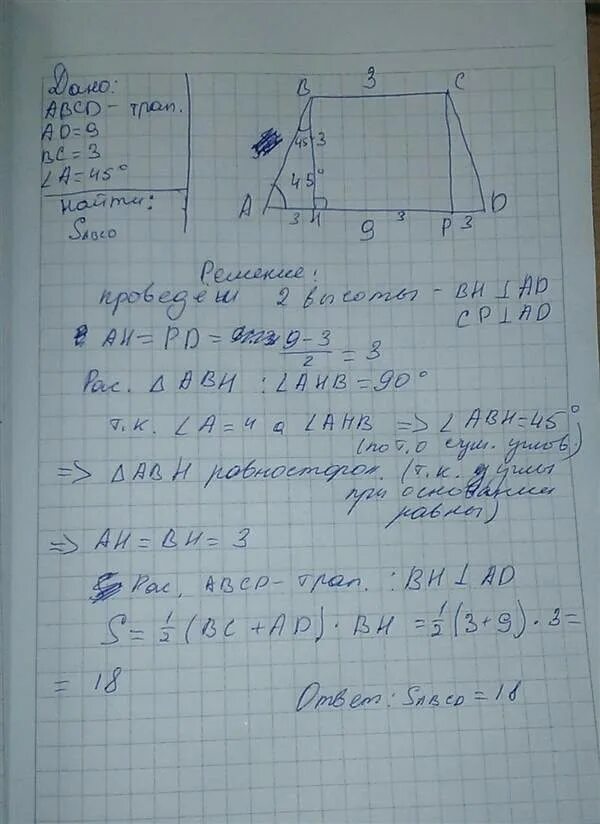 Дано:
ABCD - трап.
AD=9
BC=3
∠A=45°
найти:
SABCD
B 3 C
45 3
45°
A 3 H 3 P 3 D
9
Решение:
проведём 2 высоты - BH⊥AD
CP⊥AD
AH = PD = 9-3/2 = 3
Рас. △ABH : ∠AHB = 90°
т.к. ∠A=4 а ∠AHB => ∠ABH=45°
(по т. о сум. углов)
=> △ABH равносторон. (т.к. углы
при основании
равны)
=> AH = BH = 3
Рас. ABCD - трап. : BH⊥AD
S = 1/2 (BC + AD) · BH = 1/2 (3+9) · 3 =
= 18
Ответ: SABCD = 18